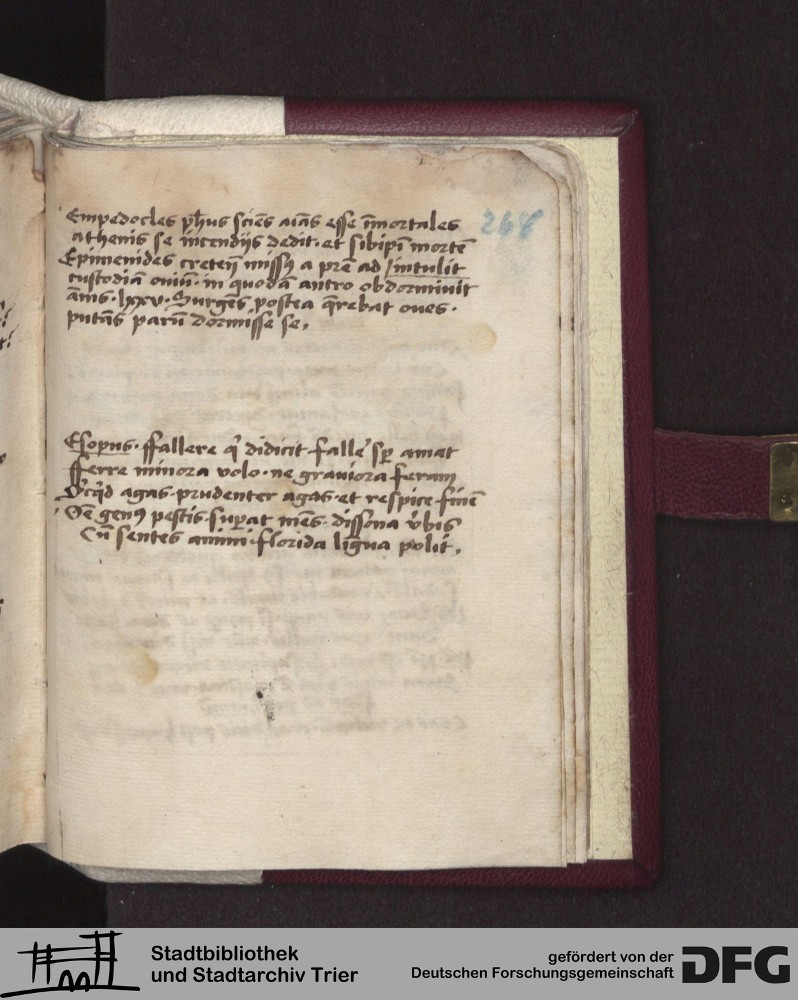 Empedocles ph̄us sciēs aīās esse īmortales
268
athenis se incendijs dedit · et sibip̄i mortē
Epimenides creteñ missꝰ a prē ad / intulit
custodiā oviū · in quodā antro obdormivit
ānis · lxxv · Surgēs postea q̄rebat oves ·
putās parū dormisse se .
Esopus · ffallere q̇ didicit · falle᷑ sꝑ amat
fferre minora volo · ne graviora feram
agas · prudenter agas · et respice finē
Oē genꝰ pestis · suꝑat mēs · dissona v̄bis
Cū sentes animi · florida līgua polit .
Stadtbibliothek
und Stadtarchiv Trier
gefördert von der
Deutschen Forschungsgemeinschaft
DFG